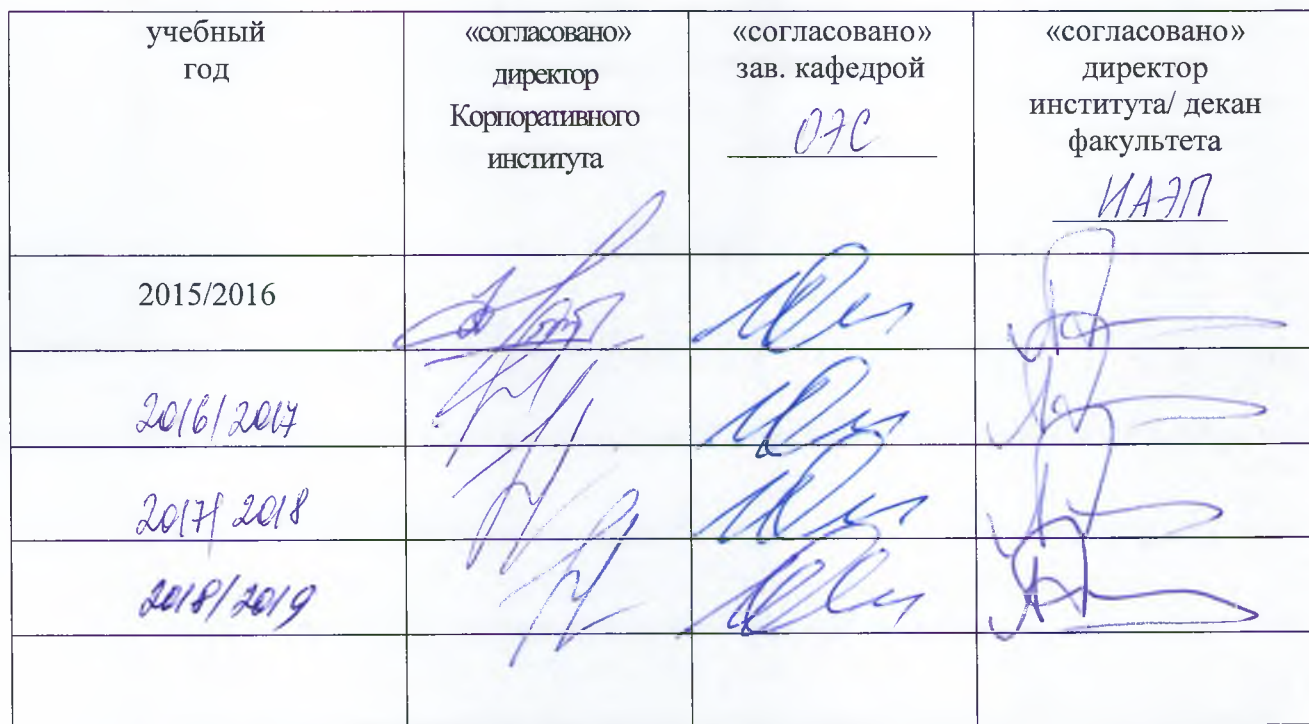 учебный
год
«согласовано»
директор
Корпоративного
института
«согласовано»
зав. кафедрой
ОЭС
«согласовано»
директор
института/ декан
факультета
ИАЭП
2015/2016
2016/2017
2017/2018
2018/2019